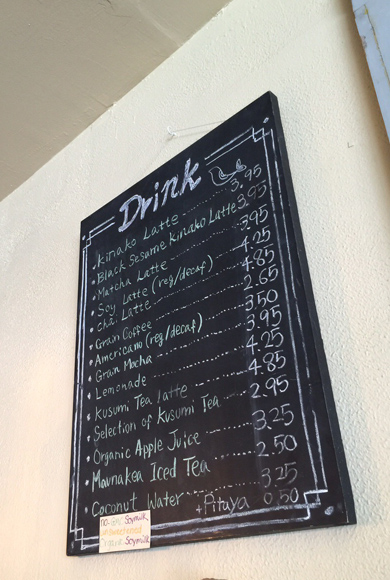 Drink
Kinako Latte 3.95
Black Sesame Kinako Latte 3.95
Matcha Latte 3.95
Soy Latte (reg/decaf) 4.25
Chai Latte 4.85
Grain Coffee 2.65
Americano (reg/decaf) 3.50
Grain Mocha 3.95
Lemonade 4.25
Kusumi Tea latte 4.85
Selection of Kusumi Tea 2.95
Organic Apple Juice 3.25
Maunakea Iced Tea 2.50
Coconut Water 3.25
+Pitaya 0.50
Soymilk
Soymilk